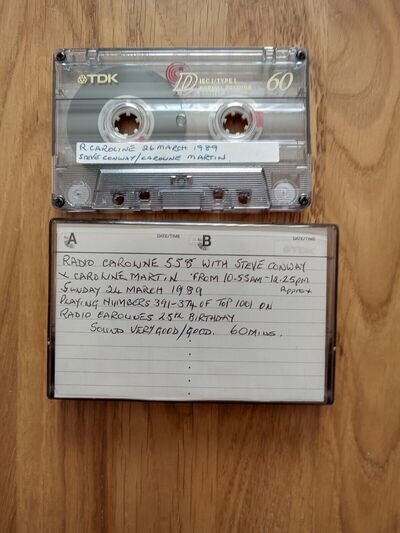 TDK
D IEC I/TYPE I
NORMAL POSITION 60
R CAROLINE 26 MARCH 1989
STEVE CONWAY/CAROLINE MARTIN
A DATE/TIME B DATE/TIME
TDK
RADIO CAROLINE 558 WITH STEVE CONWAY
& CAROLINE MARTIN FROM 10-55AM-12.25PM
SUNDAY 26 MARCH 1989 APPROX
PLAYING NUMBERS 391-374 OF TOP 1001 ON
RADIO CAROLINES 25TH BIRTHDAY
SOUND VERY GOOD/GOOD. 60 MINS.